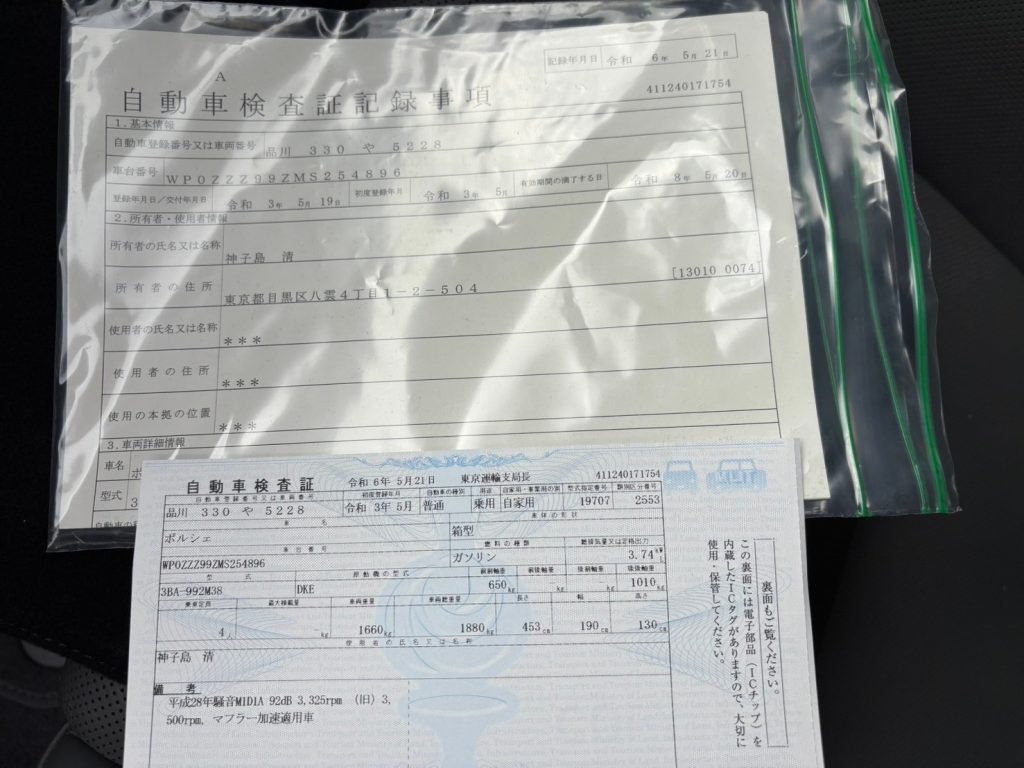 記録年月日 令和 6年 5月 21日
A
自動車検査証記録事項
411240171754
1.基本情報
自動車登録番号又は車両番号 品川 330 や 5228
車台番号 WP0ZZZ99ZMS254896
登録年月日/交付年月日 令和 3年 5月 19日 初度登録年月 令和 3年 5月 有効期間の満了する日 令和 8年 5月 20日
2.所有者・使用者情報
所有者の氏名又は名称 神子島 清
所有者の住所 東京都目黒区八雲4丁目1-2-504 [13010 0074]
使用者の氏名又は名称 ***
使用者の住所 ***
使用の本拠の位置 ***
3.車両詳細情報
車名 ポ
型式 3
自動車の
自動車検査証 令和 6年 5月21日 東京運輸支局長 411240171754
自動車登録番号又は車両番号 初度登録年月 自動車の種別 用途 自家用・事業用の別 型式指定番号 類別区分番号
品川 330 や 5228 令和 3年 5月 普通 乗用 自家用 19707 2553
車名 車体の形状
ポルシェ 箱型
車台番号 燃料の種類 総排気量又は定格出力
WP0ZZZ99ZMS254896 ガソリン 3.74 kW L
型式 原動機の型式 前前軸重 前後軸重 後前軸重 後後軸重
3BA-992M38 DKE 650kg - kg - kg 1010kg
乗車定員 最大積載量 車両重量 車両総重量 長さ 幅 高さ
4人 kg 1660kg 1880kg 453cm 190cm 130cm
使用者の氏名又は名称
神子島 清
備考
平成28年騒音MID1A 92dB 3,325rpm (旧) 3,
500rpm, マフラー加速適用車
裏面もご覧ください。
この裏面には電子部品(ICチップ)を
内蔵したICタグがありますので、大切に
使用・保管してください。